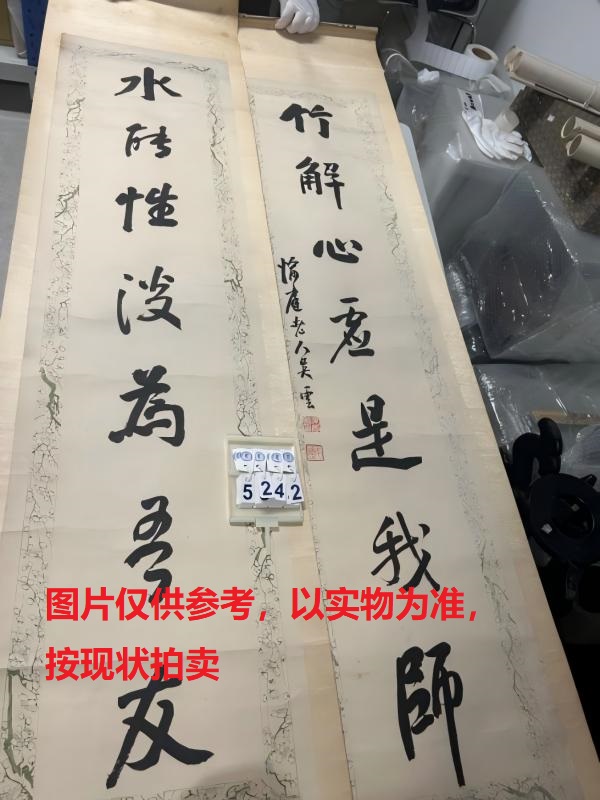 竹解心虛是我師
愉庭老人吳雲
水能性淡為吾友
5242
图片仅供参考，以实物为准，
按现状拍卖